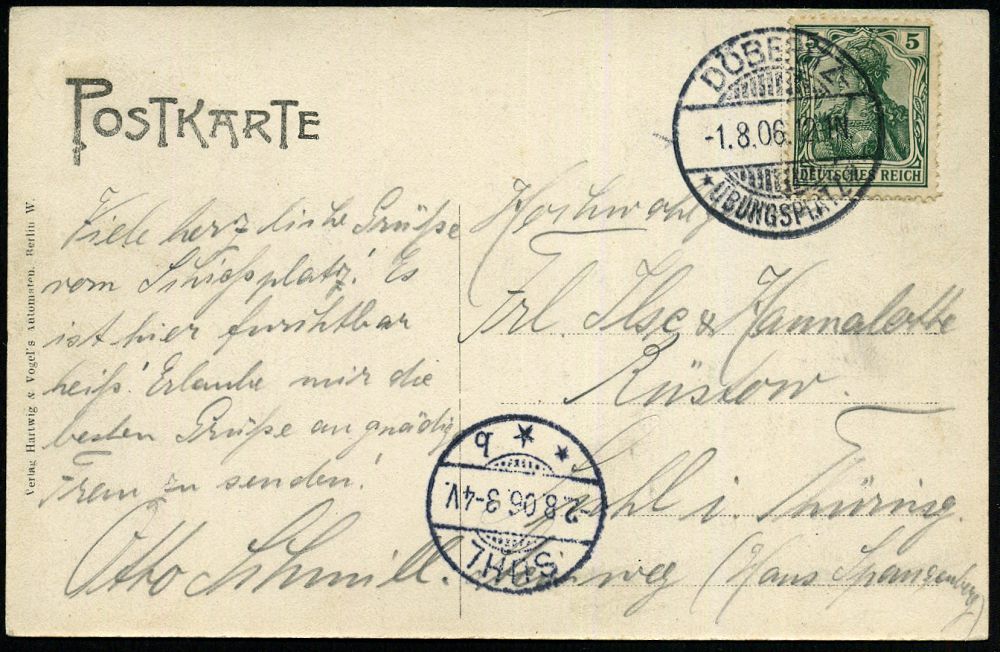 POSTKARTE
DÖBERITZ
-1.8.06.12-1N.
* ÜBUNGSPLATZ
5 5
DEUTSCHES REICH
Viele herzliche Grüße
vom Schießplatz! Es
ist hier furchtbar
heiß! Erlaube mir die
besten Grüße an gnädig
Frau zu senden!
Otto Schmill.
Frl. Ilse & Hannalotte
Rüstow.
Suhl i. Thüring.
(Haus Spangenberg)
SUHL
-2.8.06.3-4V.
* b *
Verlag Hartwig & Vogel's Automaten, Berlin W.